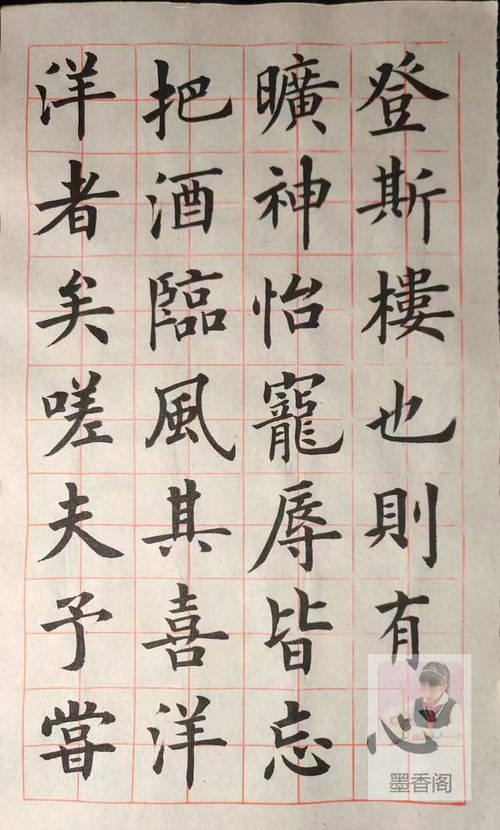 登斯樓也則有心
曠神怡寵辱皆忘
把酒臨風其喜洋
洋者矣嗟夫予嘗
墨香阁